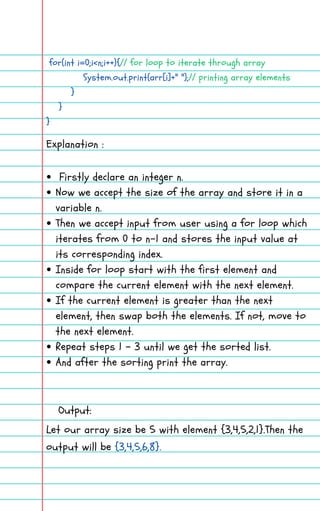 for(int i=0;i<n;i++){// for loop to iterate through array
System.out.print(arr[i]+" ");// printing array elements
}
}
}
Explanation :
• Firstly declare an integer n.
• Now we accept the size of the array and store it in a
variable n.
• Then we accept input from user using a for loop which
iterates from 0 to n-1 and stores the input value at
its corresponding index.
• Inside for loop start with the first element and
compare the current element with the next element.
• If the current element is greater than the next
element, then swap both the elements. If not, move to
the next element.
• Repeat steps 1 - 3 until we get the sorted list.
• And after the sorting print the array.
Output:
Let our array size be 5 with element {3,4,5,2,1}.Then the
output will be {3,4,5,6,8}.